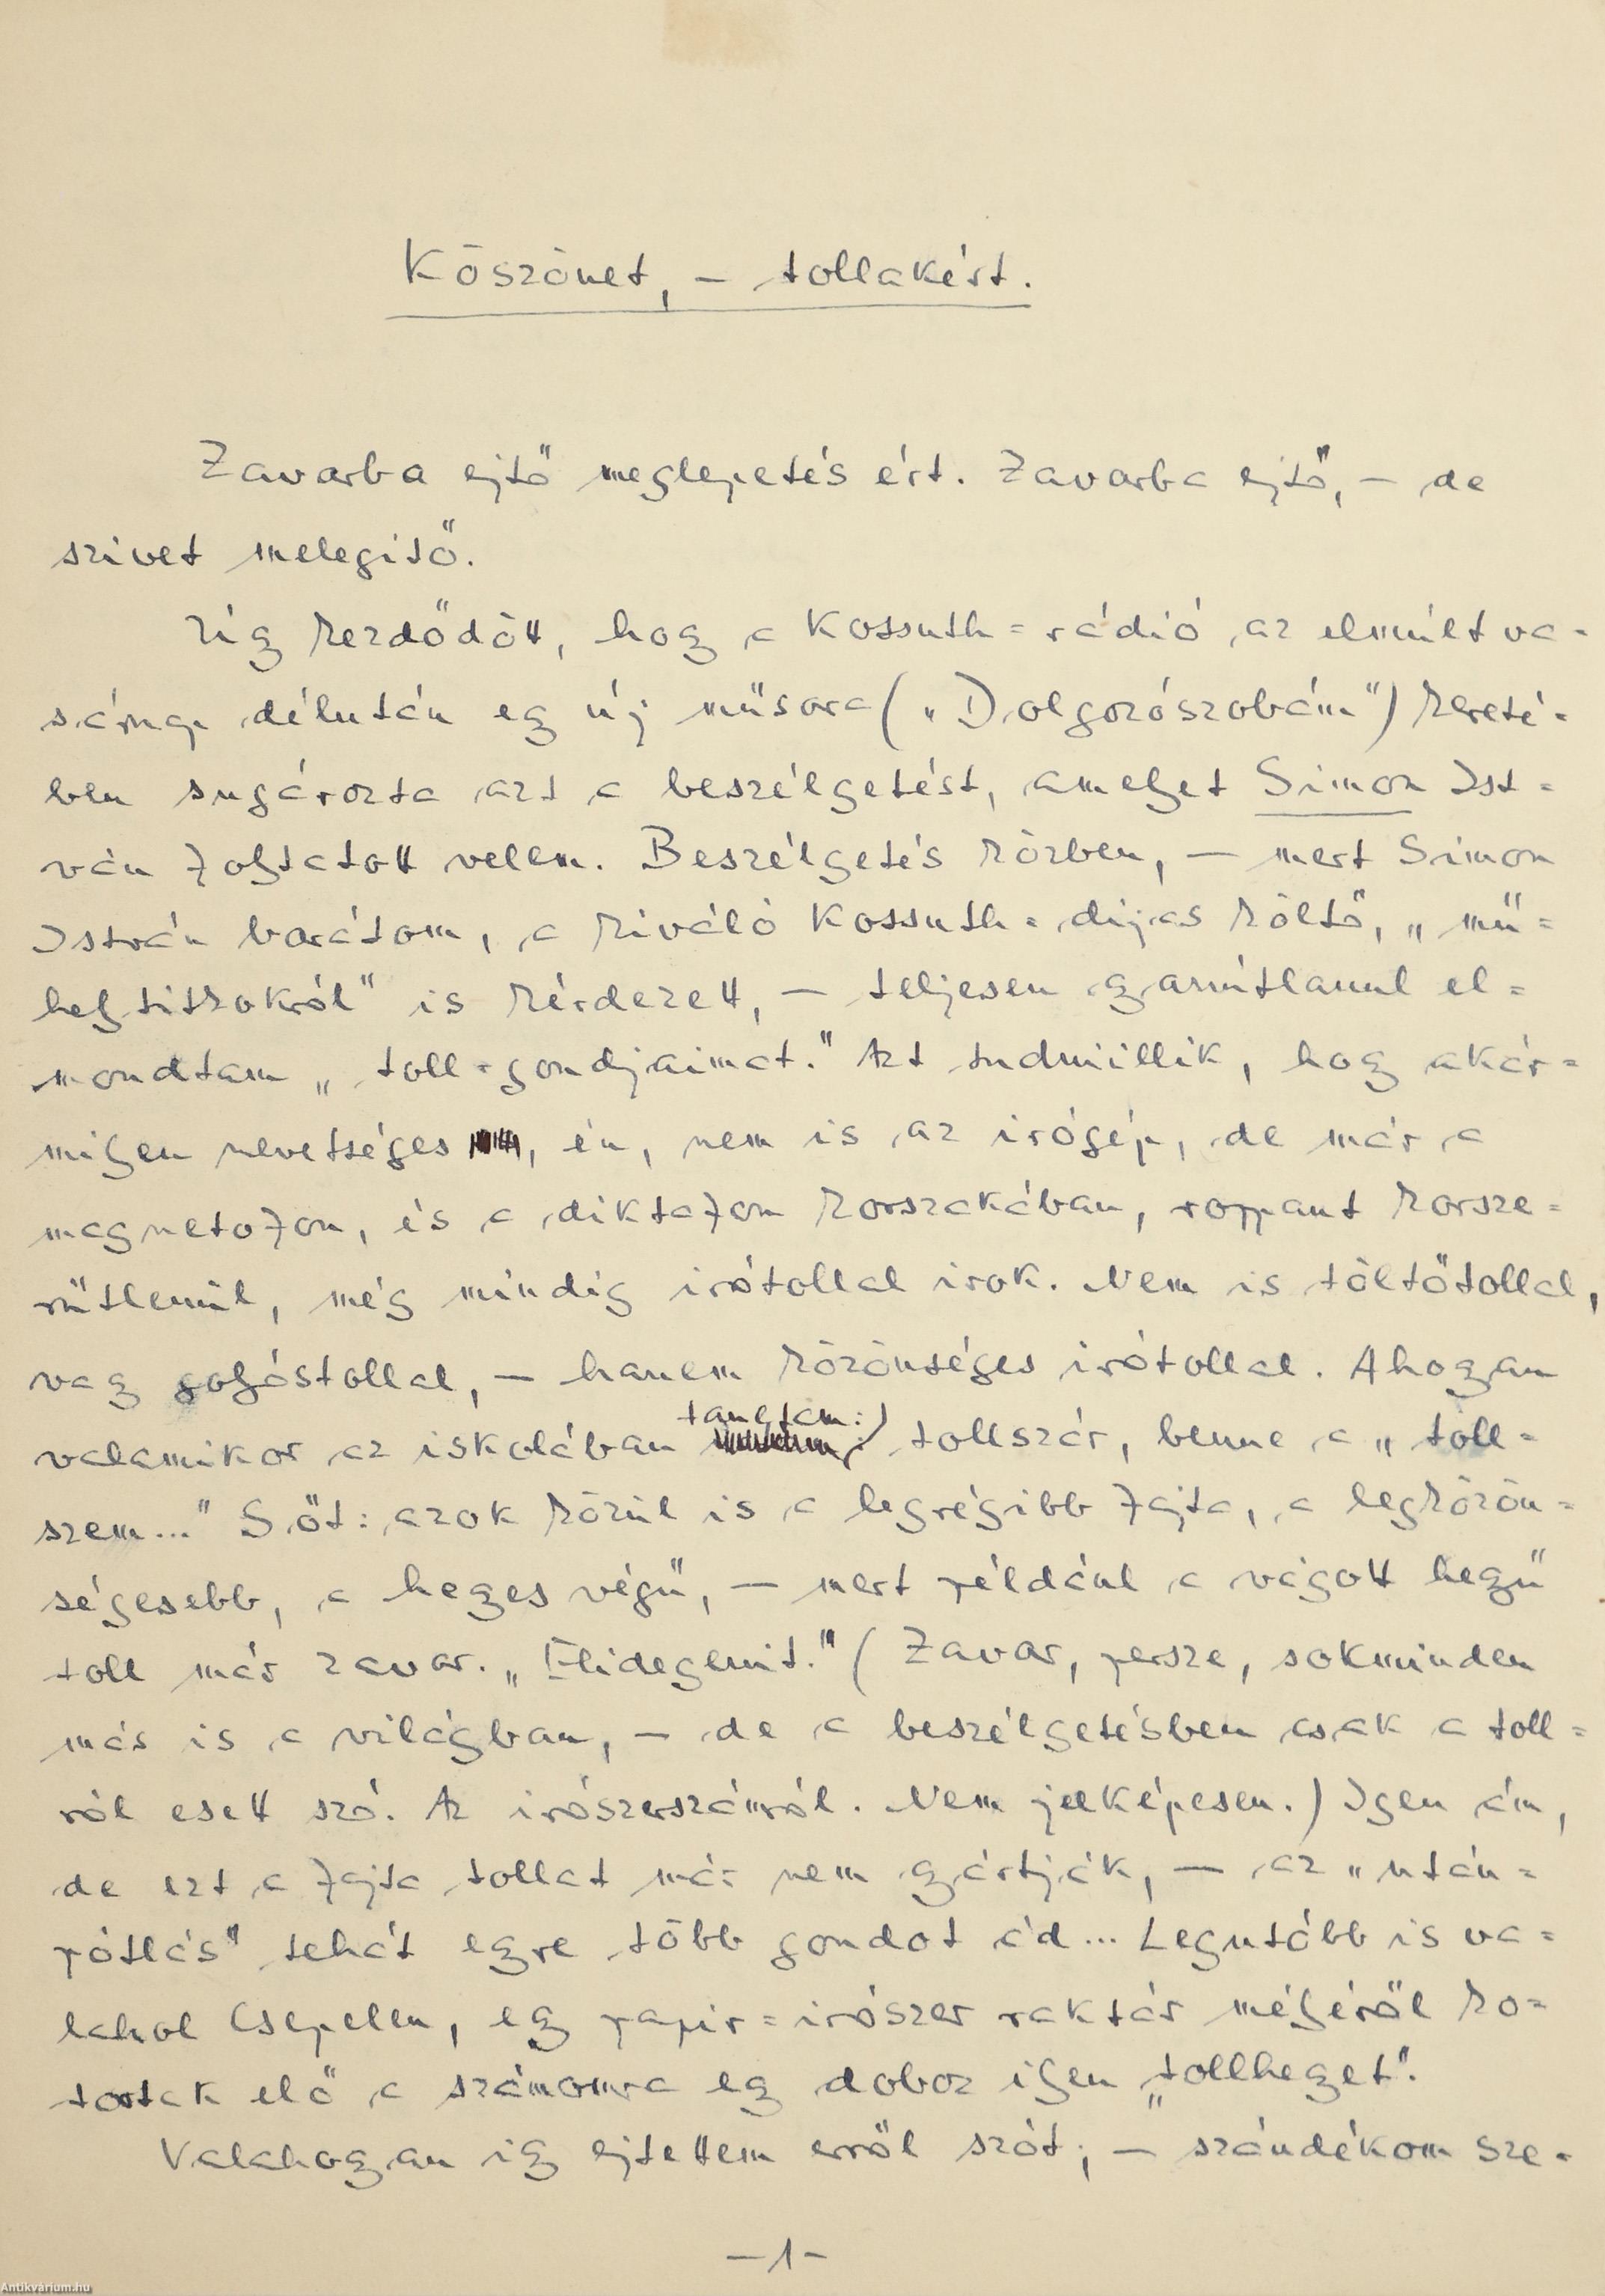 Köszönet, – tollakért.
Zavarba ejtő meglepetés ért. Zavarba ejtő, – de
szivet melegitő.
Úgy kezdődött, hogy a Kossuth=rádió az elmúlt va=
sárnap délután egy új műsora („Dolgozószobám”) kereté=
ben sugározta azt a beszélgetést, amelyet Simon Ist=
ván folytatott velem. Beszélgetés közben, – mert Simon
István barátom, a kiváló Kossuth=díjas költő, „mű=
helytitkokról” is kérdezett, – teljesen gyanútlanul el=
mondtam „toll=gondjaimat.” Azt tudniillik, hogy akár=
milyen nevetséges, én, nem is az irógép, de már a
magnetofon, és a diktafon korszakában, roppant korsze=
rűtlenül, még mindíg irótollal irok. Nem is töltőtollal,
vagy golyóstollal, – hanem közönséges irótollal. Ahogyan
valamikor az iskolában tanultam: tollszár, benne a „toll=
szem...” Sőt: azok közül is a legrégibb fajta, a legközön=
ségesebb, a hegyes végű, – mert például a vágott hegyű
toll már zavar. „Elidegenit.” (Zavar, persze, sokminden
más is a világban, – de a beszélgetésben csak a toll=
ról esett szó. Az irószerszámról. Nem jelképesen.) Igen ám,
de ezt a fajta tollat már nem gyártják, – az „után=
pótlás” tehát egyre több gondot ád... Legutóbb is va=
lahol Csepelen, egy papir=irószer raktár mélyéről ko=
tortak elő a számomra egy doboz ilyen „tollhegyet”.
Valahogyan igy ejtettem erről szót; – szándékom sze=
–1–
Antikvárium.hu